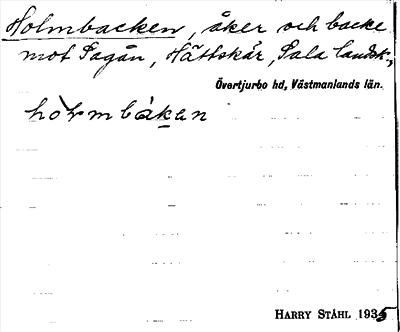 Holmbacken, åker och backe
mot Sagån, Hättskär, Sala landsk.,
Övertjurbo hd, Västmanlands län.
hòlmbákan
HARRY STÅHL 1935